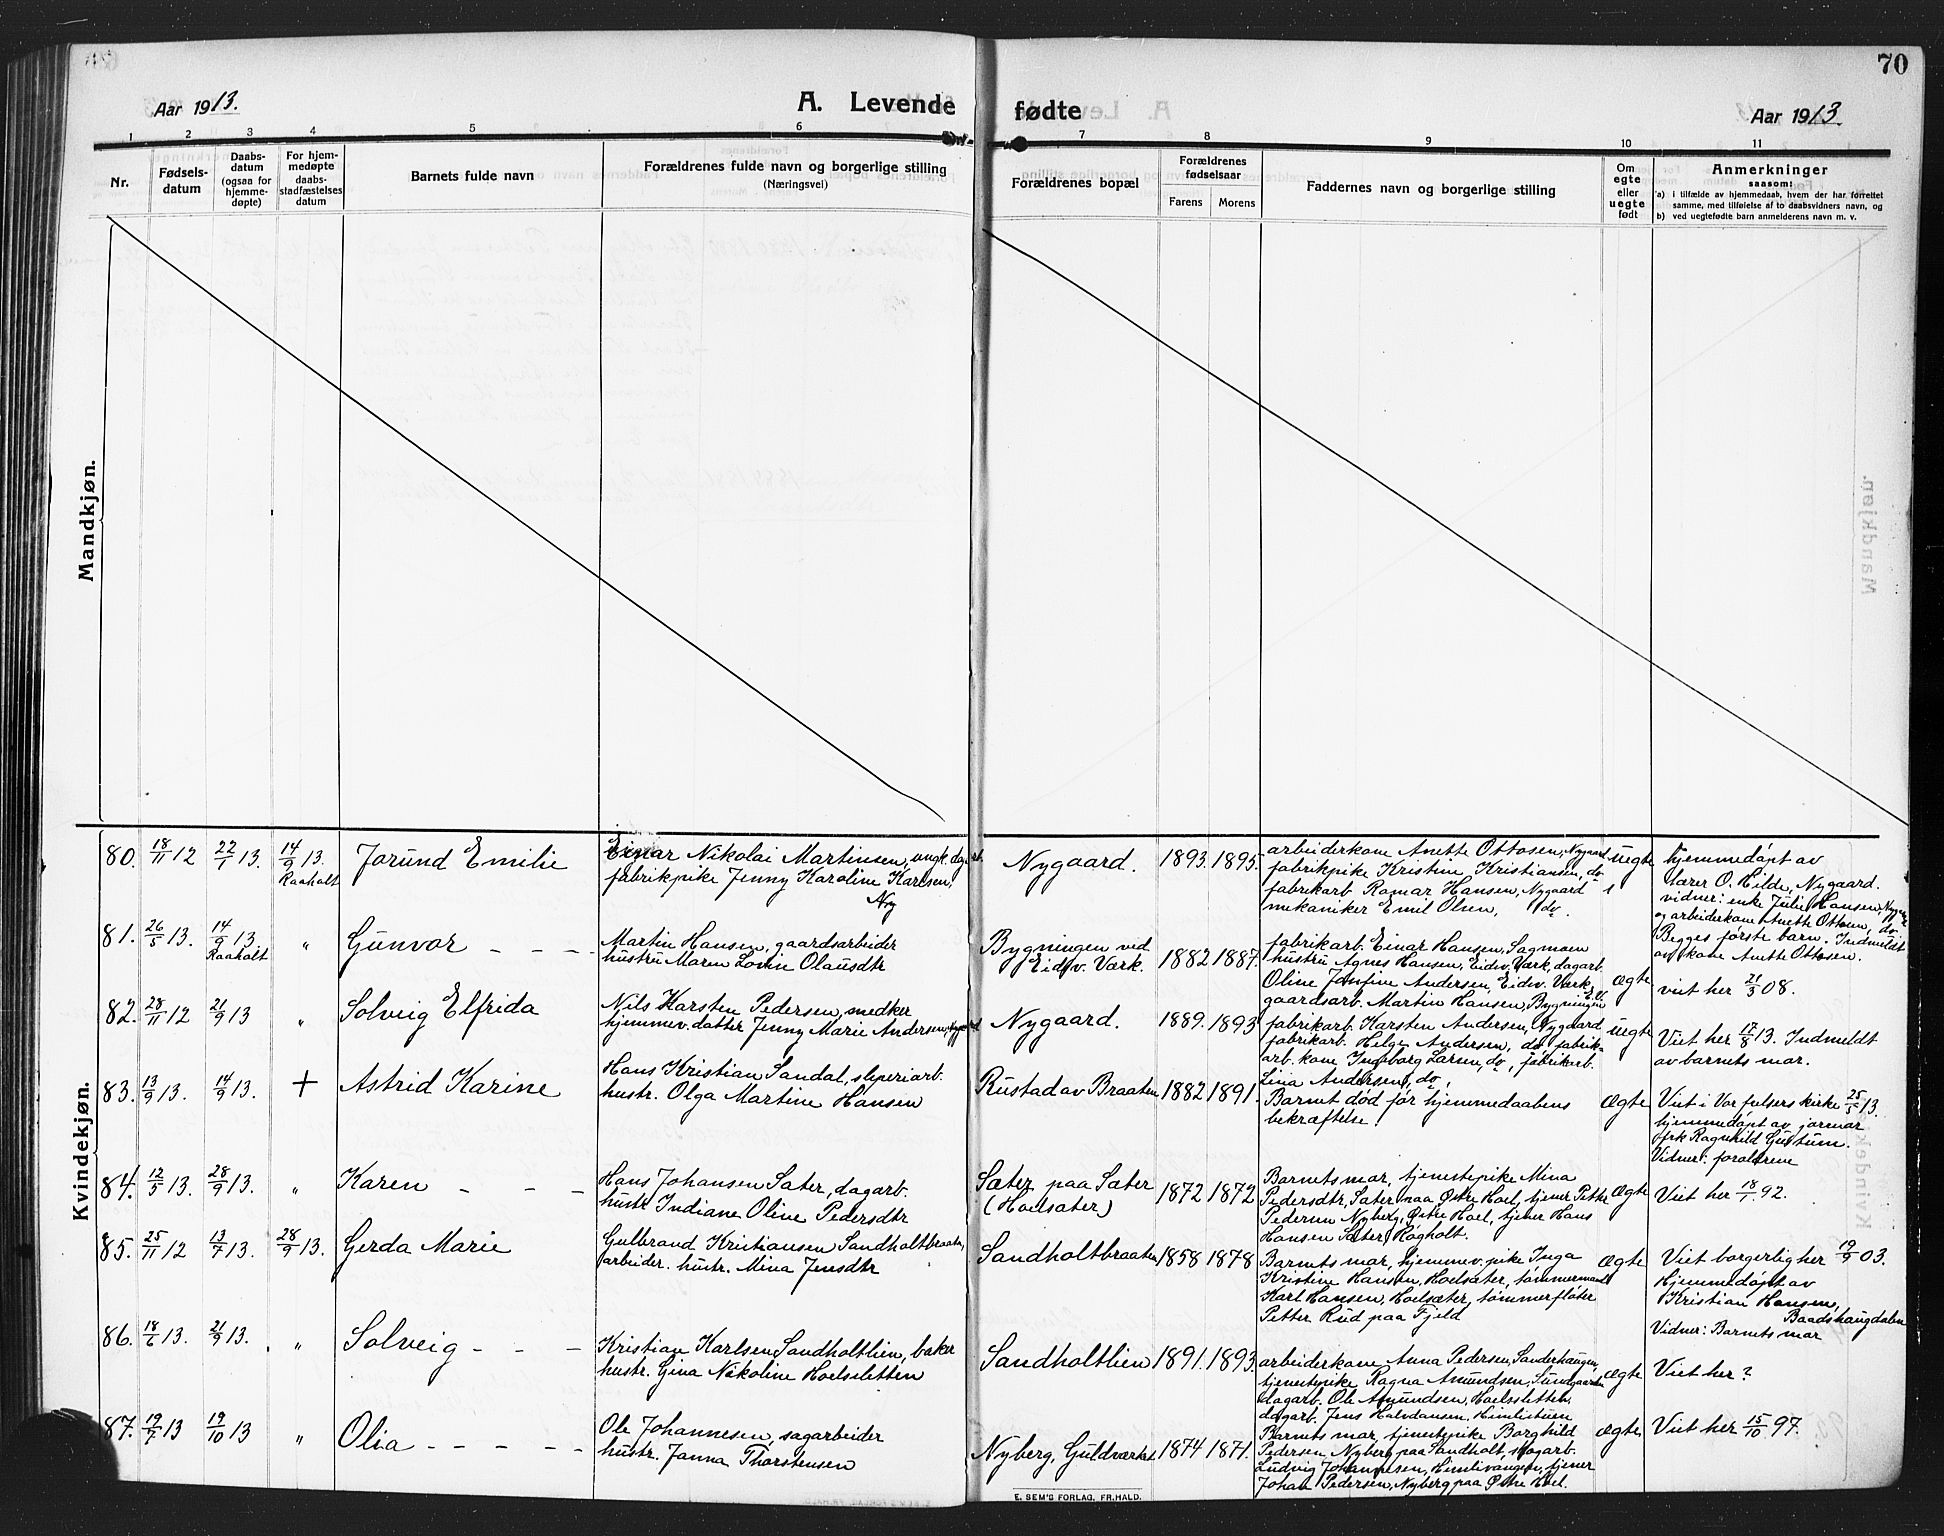 70
Aar 1913.
A. Levende fødte
Aar 1913.
1 2 3 4 5 6 7 8 9 10 11
Nr.
Fødsels-
datum
Daabs-
datum
(ogsaa for
hjemme-
døpte)
For hjem-
medøpte
daabs-
stadfæstelses
datum
Barnets fulde navn
Forældrenes fulde navn og borgerlige stilling
(Næringsvei)
Forældrenes bopæl
Forældrenes
fødselsaar
Farens Morens
Faddernes navn og borgerlige stilling
Om
egte
eller
uegte
født
Anmerkninger
saasom:
a) i tilfælde av hjemmedaab, hvem der har forrettet
samme, med tilføielse af to daabsvidners navn, og
b) ved uegtefødte barn anmelderens navn m. v.
Mandkjøn.
Kvindekjøn.
80. 18/11 12 22/1 13. 14/9 13. Raaholt
Jorund Emilie
Einar Nikolai Martinsen, ungk. dagarb.
fabrikpike Jenny Karoline Karlsen,
Nygaard. 1893. 1895.
arbeiderkone Anette Ottosen, Nygaard
fabrikpike Kristine Kristiansen, do
fabrikarb Ramar Hansen, Nygaard
mekaniker Emil Olsen, do.
uegte
hjemmedøpt av
lærer O. Hilde, Nygaard.
vidner: enke Julie Hansen, Nygaard
og arbeiderkone Anette Ottosen, do.
Begges første barn. Indmeldt
av kone Anette Ottosen.
81. 26/5 13. 14/9 13 Raaholt "
Gunvor - - -
Martin Hansen, gaardsarbeider
hustru Maren Lovin Olausdtr
Bygningen ved
Eidsv. Værk. 1882 1887.
fabrikarb. Einar Hansen, Sagmoen
hustru Agnes Hansen, Eidsv. Værk, dagarb.
Oline Josefine Andersen, Eidsv. Værk,
gaardsarb. Martin Hansen, Bygningen E.V.
ægte
viet her 21/3 08.
82. 28/11 12 21/9 13 "
Solveig Elfrida
Nils Karsten Pedersen, smedker
hjemmev. datter Jenny Marie Andersen, Nygaard
Nygaard. 1889. 1893
fabrikarb. Karsten Andersen, Nygaard
fabrikarb. Helge Andersen, do fabrik-
arb. kone Ingeborg Larsen, do, fabrikarb.
Lina Andersen, do,
uegte
Viet her 17/8 13. Indmeldt
av barnets mor.
83. 13/9 13. 14/9 13. +
Astrid Karine
Hans Kristian Sandal, sliperiarb.
hustr. Olga Martine Hansen
Rustad av Braaten 1882 1891.
Barnet død før hjemmedaabens
bekræftelse!
ægte
Viet i Vor frelsers kirke 25/5 13.
hjemmedøpt av jormor
frk Ragnhild Gustum.
Vidner: forældrene
84. 12/5 13. 28/9 13. "
Karen - - -
Hans Johansen Sæter, dagarb.
hustr. Indiane Oline Pedersdtr
Sæter paa Sæter
(Hoelsæter) 1872 1872
Barnets mor, tjenestepike Mina
Pedersdtr, Sæter paa Østre Hoel, tjener Petter
Pedersen Nyberg, Østre Hoel, tjener Hans
Hansen Sæter, Høgholt.
ægte
Viet her 18/1 92.
85. 25/11 12 13/7 13. 28/9 13.
Gerda Marie
Gulbrand Kristiansen Sandholtbraaten,
arbeider. hustr. Mina Jensdtr
Sandholtbraaten 1858 1878
Barnets mor, hjemmev. pike Inga
Kristine Hansen, Hoelsæter, tømmermand
Karl Hansen, Hoelsæter, tømmerfløter
Petter Rud paa Fjeld
ægte
Viet borgerlig her 19/9 03.
Hjemmedøpt av
Kristian Hansen,
Baadshaugdalen
Vidner: Barnets mor
86. 18/6 13. 21/9 13. "
Solveig - - -
Kristian Karlsen Sandholtlien, baker
hustr. Gina Nikoline Hoelsletten
Sandholtlien 1891. 1893.
arbeiderkone Anna Pedersen, Sanderhaugen,
tjenestepike Ragna Amundsen, Sundgaarden
dagarb. Ole Amundsen, Hoelssletten,
dagarb. Jens Halvdansen, Himlistuen
ægte
Viet her?
87. 19/7 13 19/10 13 "
Olia - - - - -
Ole Johannesen, sagarbeider
hustr. Janna Thorstensen
Nyberg, Guldværket 1874 1871.
Barnets mor, tjenestepike Borghild
Pedersen, Nyberg paa Sandholt, skogarb.
Ludvig Johannesen, Himlivangen, tjener
Johan Pedersen, Nyberg paa Østre Hoel.
ægte
Viet her 15/10 97.
E. SEM'S FORLAG, FR.HALD.